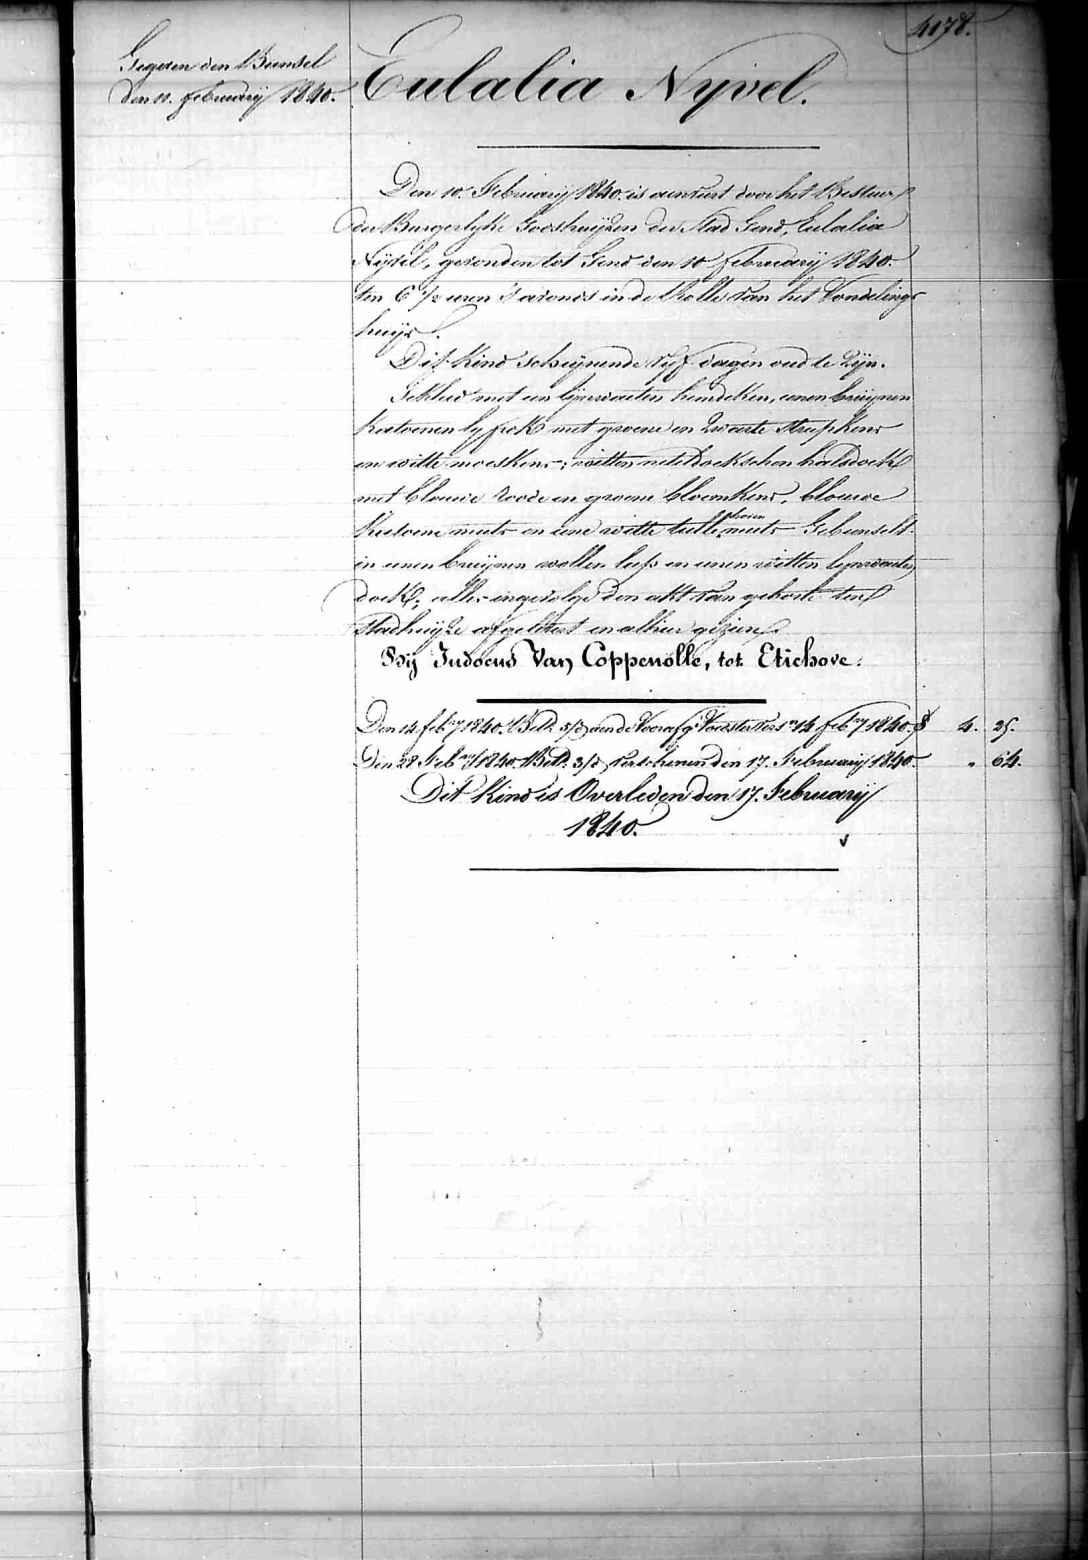 4178.
Gegeven den Bunsel
den 10. februarij 1840.
Eulalia Nyvel.
Den 10. Februarij 1840. is aenveert door het Bestuer
der Burgerlyke Godshuijzen der Stad Gend, Eulalia
Nijvel, gevonden tot Gend den 10 februarij 1840.
ten 6 1/2 uren 's avonds in de Rolle van het Vondelings
huijs.
Dit Kind schijnende vyf dagen oud te zijn.
Gekleed met een lijnwaeten hemdeken, eenen bruijnen
Katoenen lyfrok met groene en zwarte streepkens
en witte moeskens; witten neteldoekschen halsdoek
met blauwe roode en groene bloemkens, blauwe
Katoene muts en eene witte tulle muts Gebunseld
in eenen bruijnen wollen lap en eenen witten lynwaeten
doek; alles ingevolge den akt van geboorte ten
Stadhuijze afgeleverd en alhier gezien.
Bij Judocus Van Coppenolle, tot Etichove.
Den 14 febry 1840. Betd. 5/3 aen de Voorafge Voedster Verst 14 febry 1840. 4. 25.
Den 28 Febry 1840. Betd. 3/3 verschenen den 17. Februarij 1840. " 64.
Dit Kind is Overleden den 17. Februarij
1840.